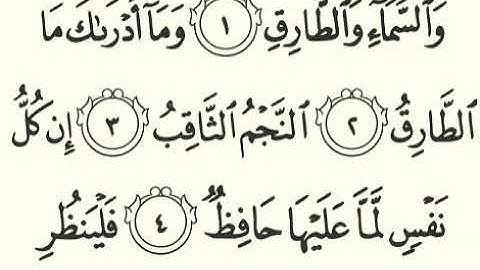 وَٱلسَّمَآءِ وَٱلطَّارِقِ ١ وَمَآ أَدۡرَىٰكَ مَا
ٱلطَّارِقُ ٢ ٱلنَّجۡمُ ٱلثَّاقِبُ ٣ إِن كُلُّ
نَفۡسٖ لَّمَّا عَلَيۡهَا حَافِظٞ ٤ فَلۡيَنظُرِ